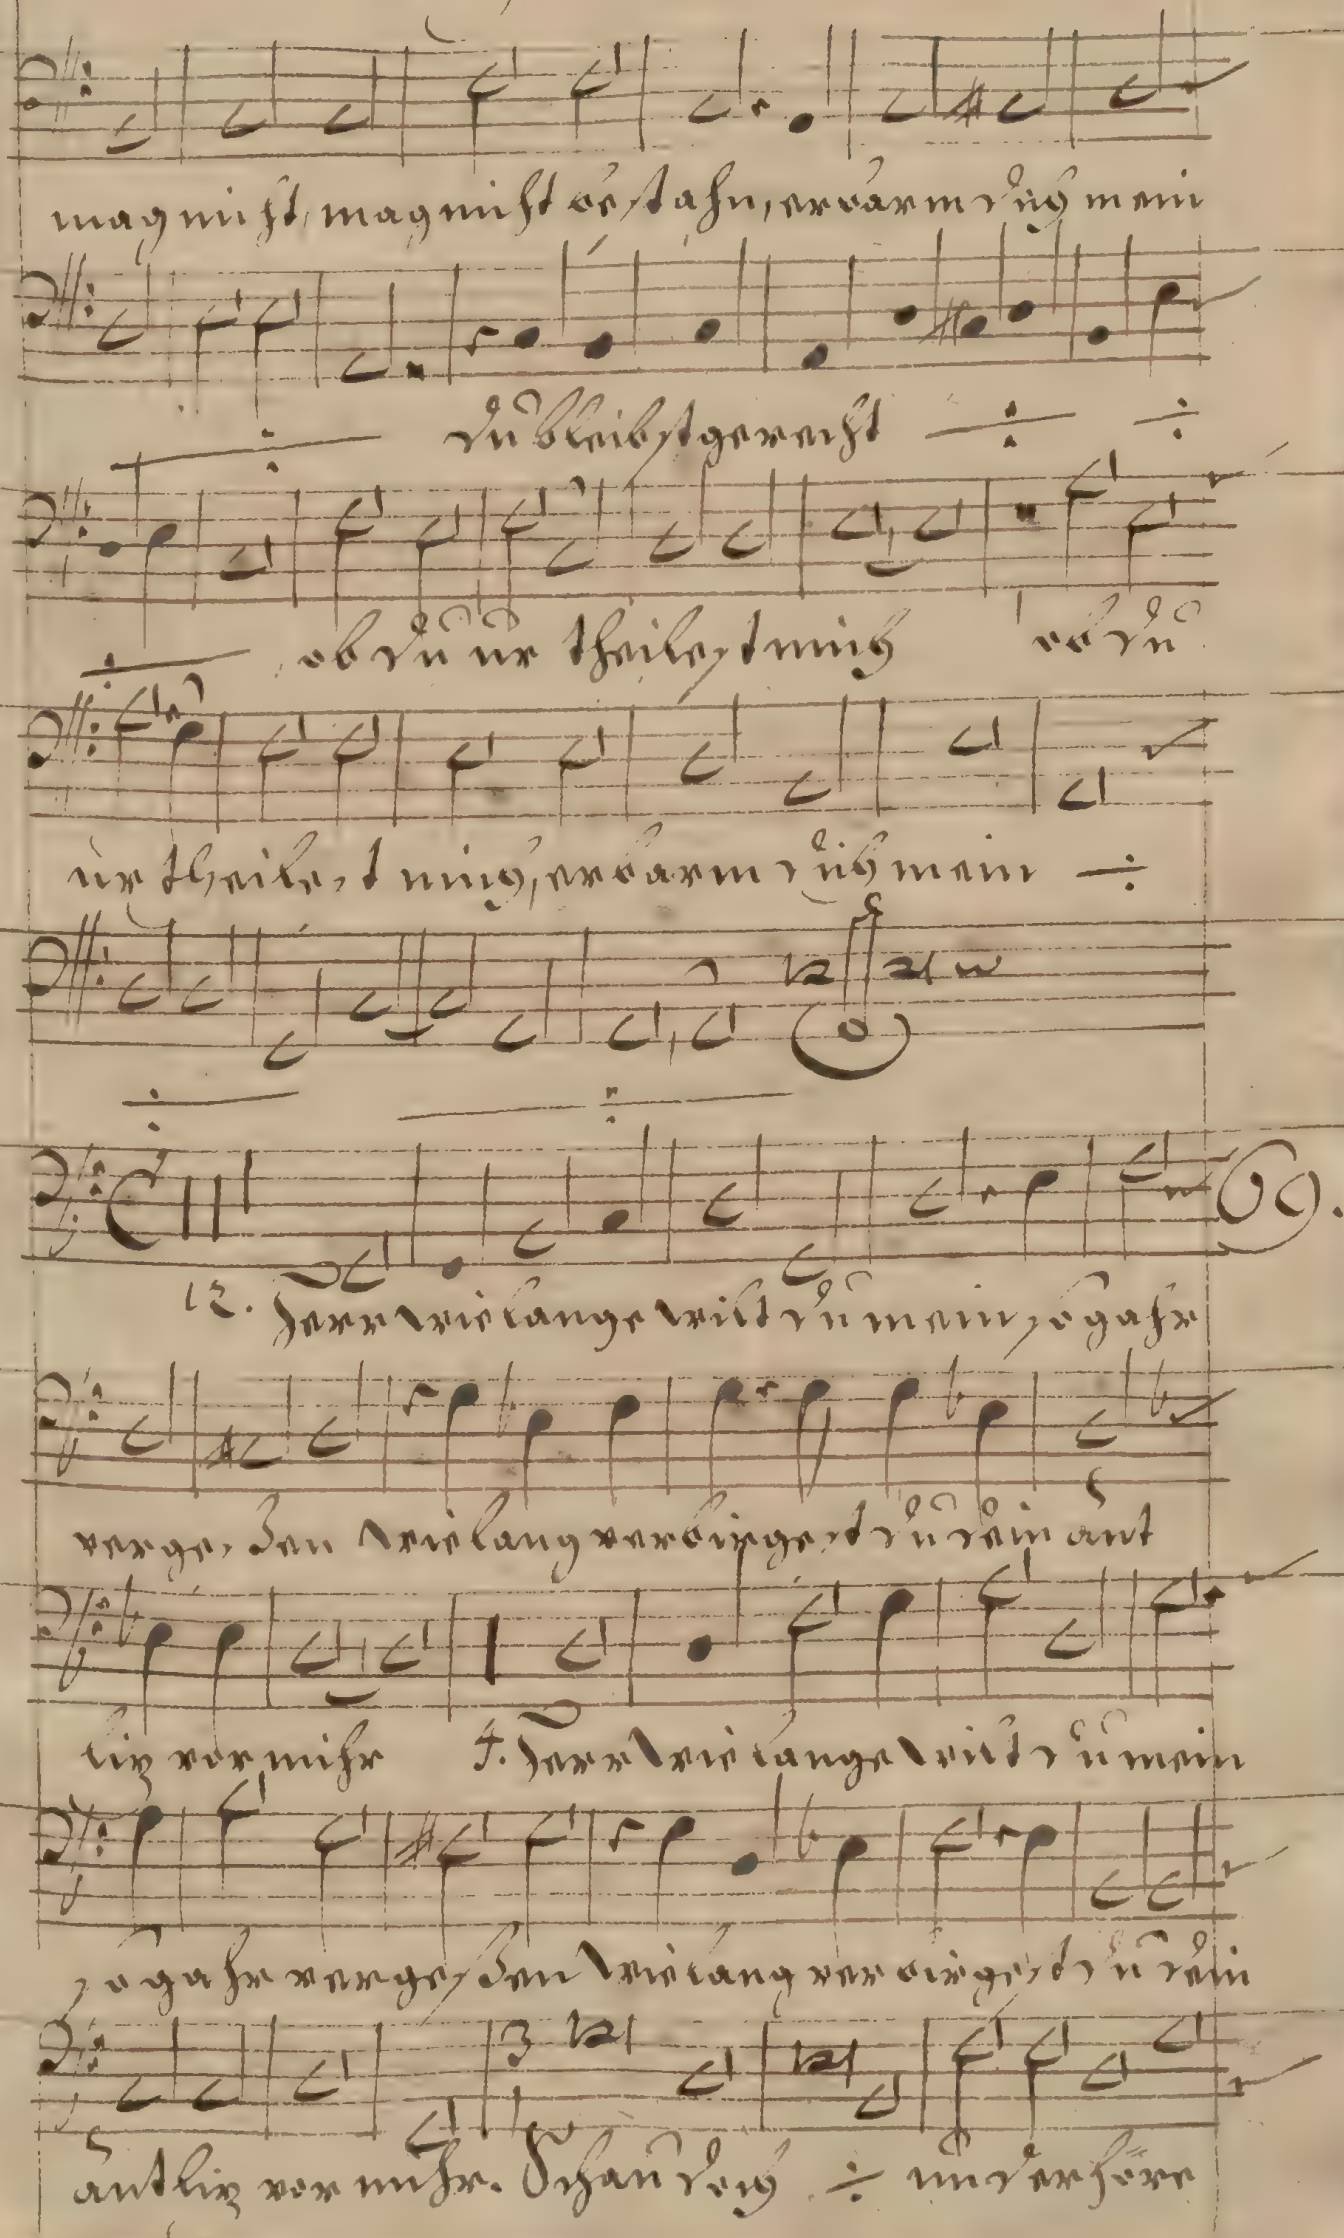 mag nicht, mag nicht bestahn, erbarm dich mein
÷ du bleibst gerecht ÷ ÷
÷ ob du urtheilest mich ob du
urtheilest mich, erbarm dich mein ÷
÷ ÷
69.
12. Herr wie lange wilt du mein so gahr
vergeßen wie lang verbirgest du dein ant
liz vor mihr 4. Herr wie lange wilt du mein
so gahr vergeßen wie lang verbirgest du dein
3
antliz vor mihr. Schau doch ÷ und erhöre